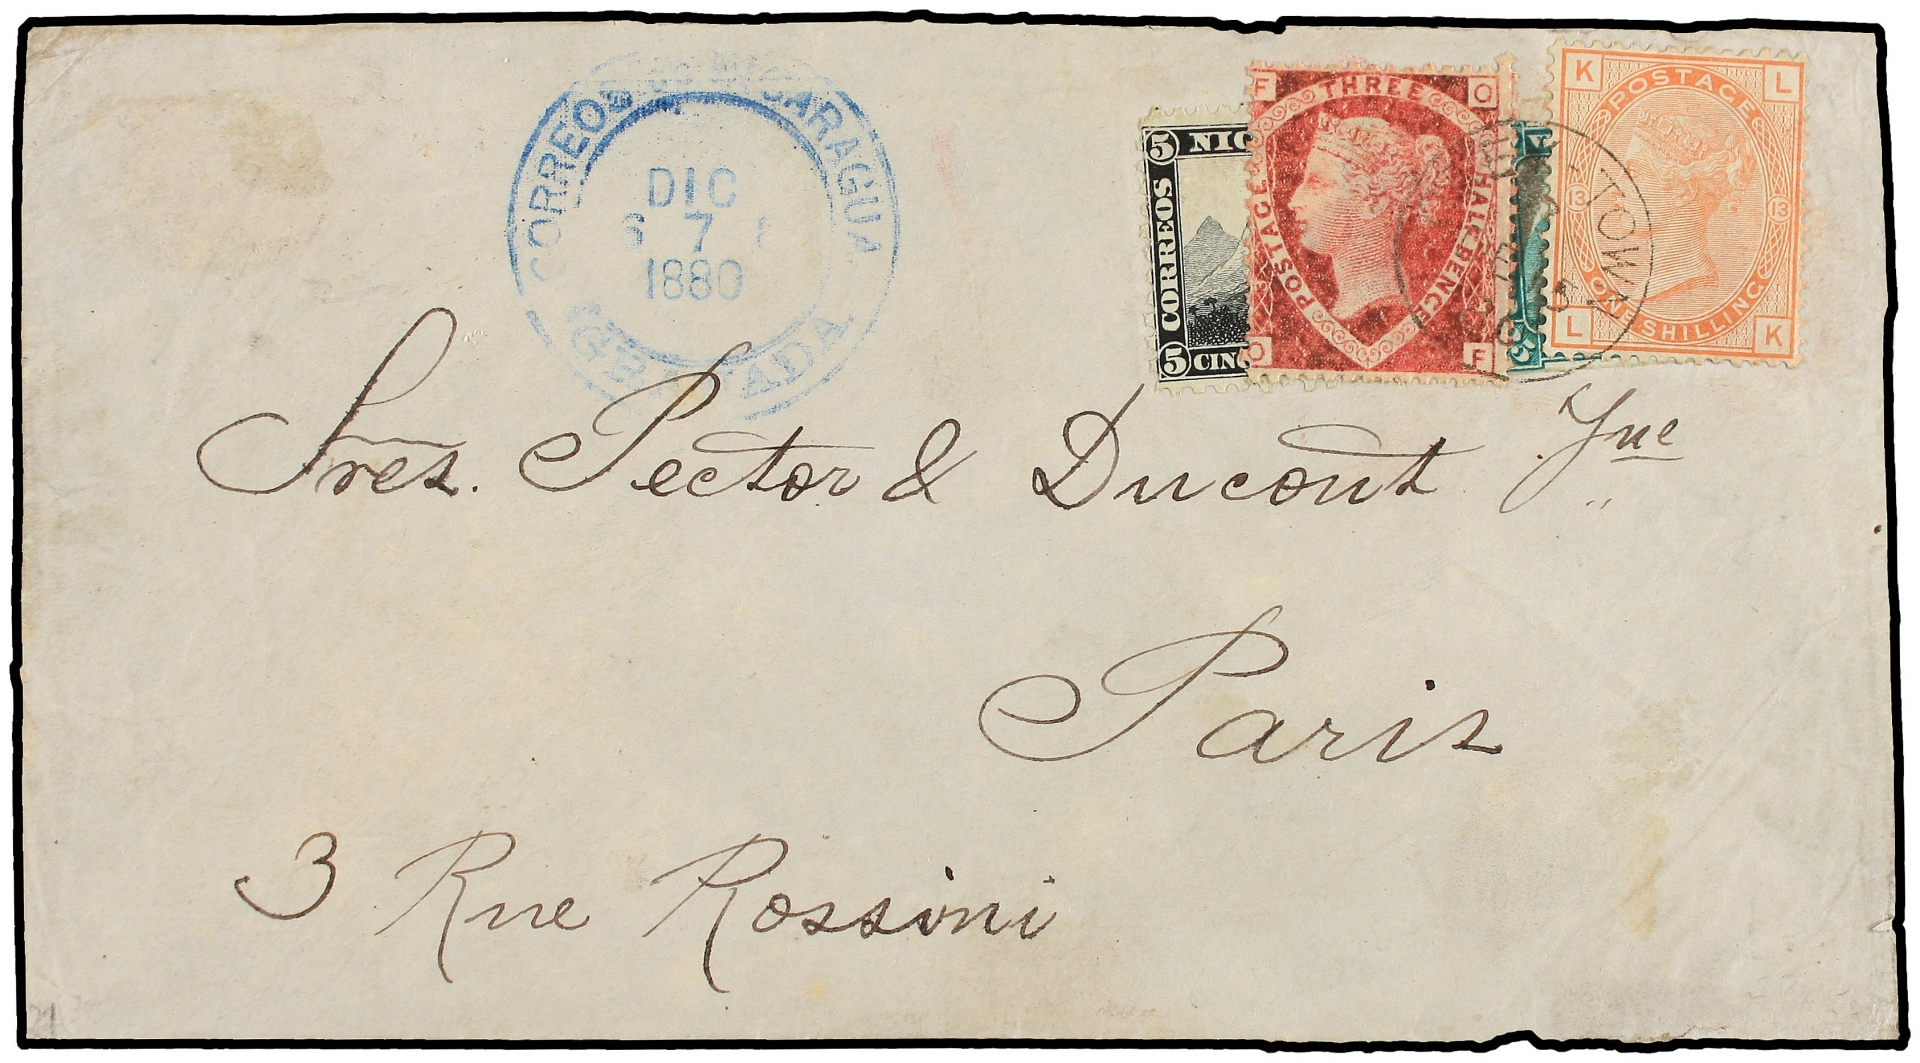 CORREOS DE NICARAGUA
DIC
7
1880
GRANADA
5 NIC
CORREOS
5 CINC
F THREE O
POSTAGE HALFPENCE
O F
5
K POSTAGE L
13 13
ONE SHILLING
L K
TOWN
Sres. Pector & Ducout Jne
Paris
3 Rue Rossini